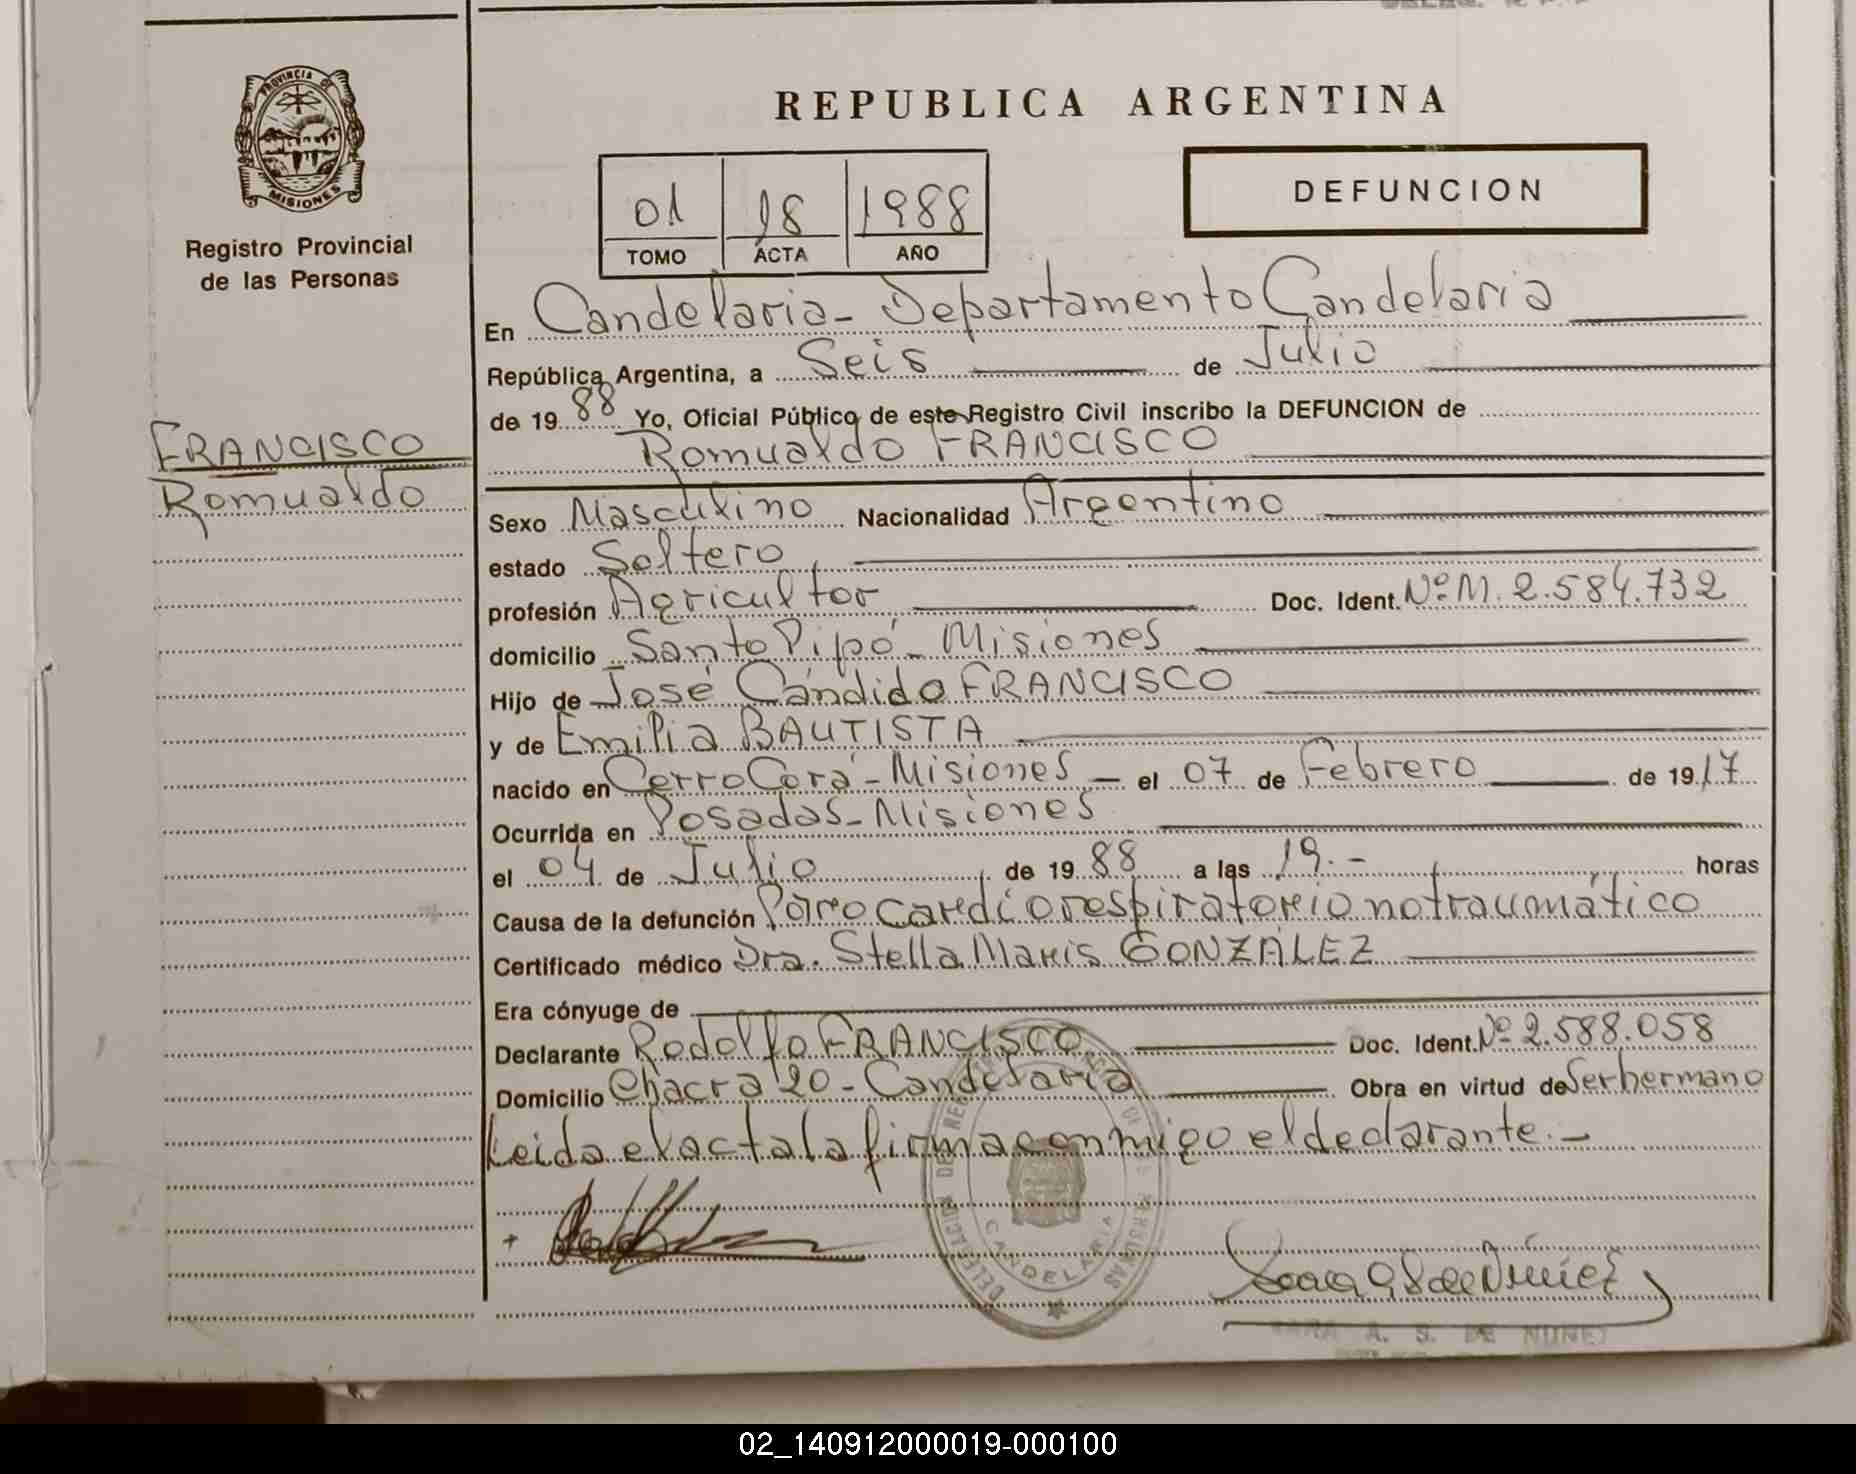 PROVINCIA DE
MISIONES
Registro Provincial
de las Personas
FRANCISCO
Romualdo
REPUBLICA ARGENTINA
01 18 1988
TOMO ACTA AÑO
DEFUNCION
En Candelaria - Departamento Candelaria
República Argentina, a Seis de Julio
de 19 88 Yo, Oficial Público de este Registro Civil inscribo la DEFUNCION de
Romualdo FRANCISCO
Sexo Masculino Nacionalidad Argentino
estado Soltero
profesión Agricultor Doc. Ident. Nº M. 2.584.732
domicilio Santo Pipó - Misiones
Hijo de José Cándido FRANCISCO
y de Emilia BAUTISTA
nacido en Cerro Corá - Misiones - el 07 de Febrero de 19 17
Ocurrida en Posadas - Misiones
el 04 de Julio de 19 88 a las 19.- horas
Causa de la defunción Paro cardíorespiratorio no traumático
Certificado médico Dra. Stella Maris GONZÁLEZ
Era cónyuge de
Declarante Rodolfo FRANCISCO Doc. Ident. Nº 2.588.058
Domicilio Chacra 20 - Candelaria Obra en virtud de Ser hermano
Leida el acta la firma conmigo el declarante.-
CANDELARIA
SARA A. S. DE NUÑEZ
02_140912000019-000100